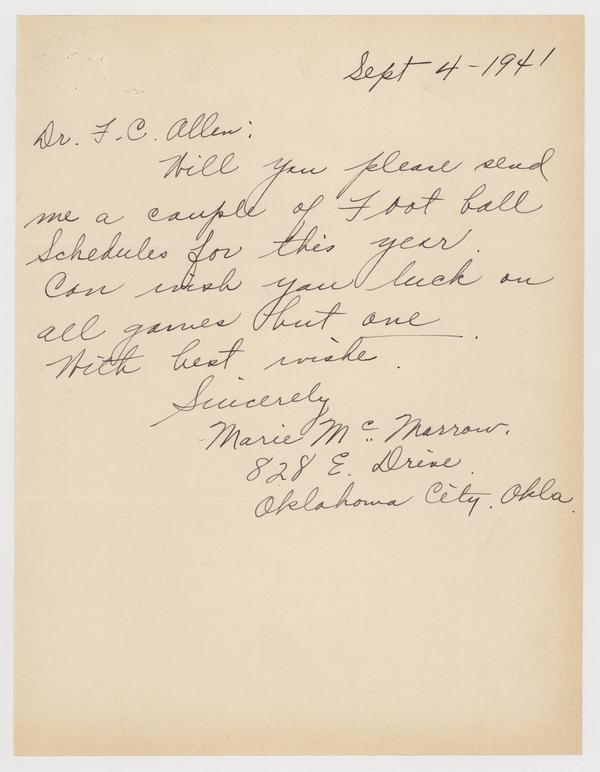 Sept 4-1941
Dr. F. C. Allen:
Will you please send
me a couple of Foot ball
Schedules for this year.
Can wish you luck on
all games but one.
With best wishe.
Sincerely
Marie Mc Marrow.
828 E. Drive.
Oklahoma City, Okla.